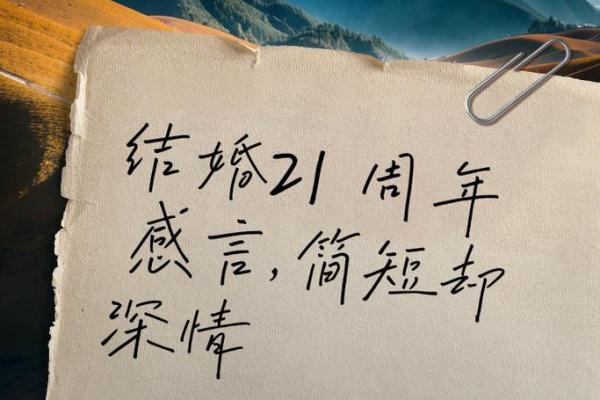 结婚21周年
感言,简短却
深情